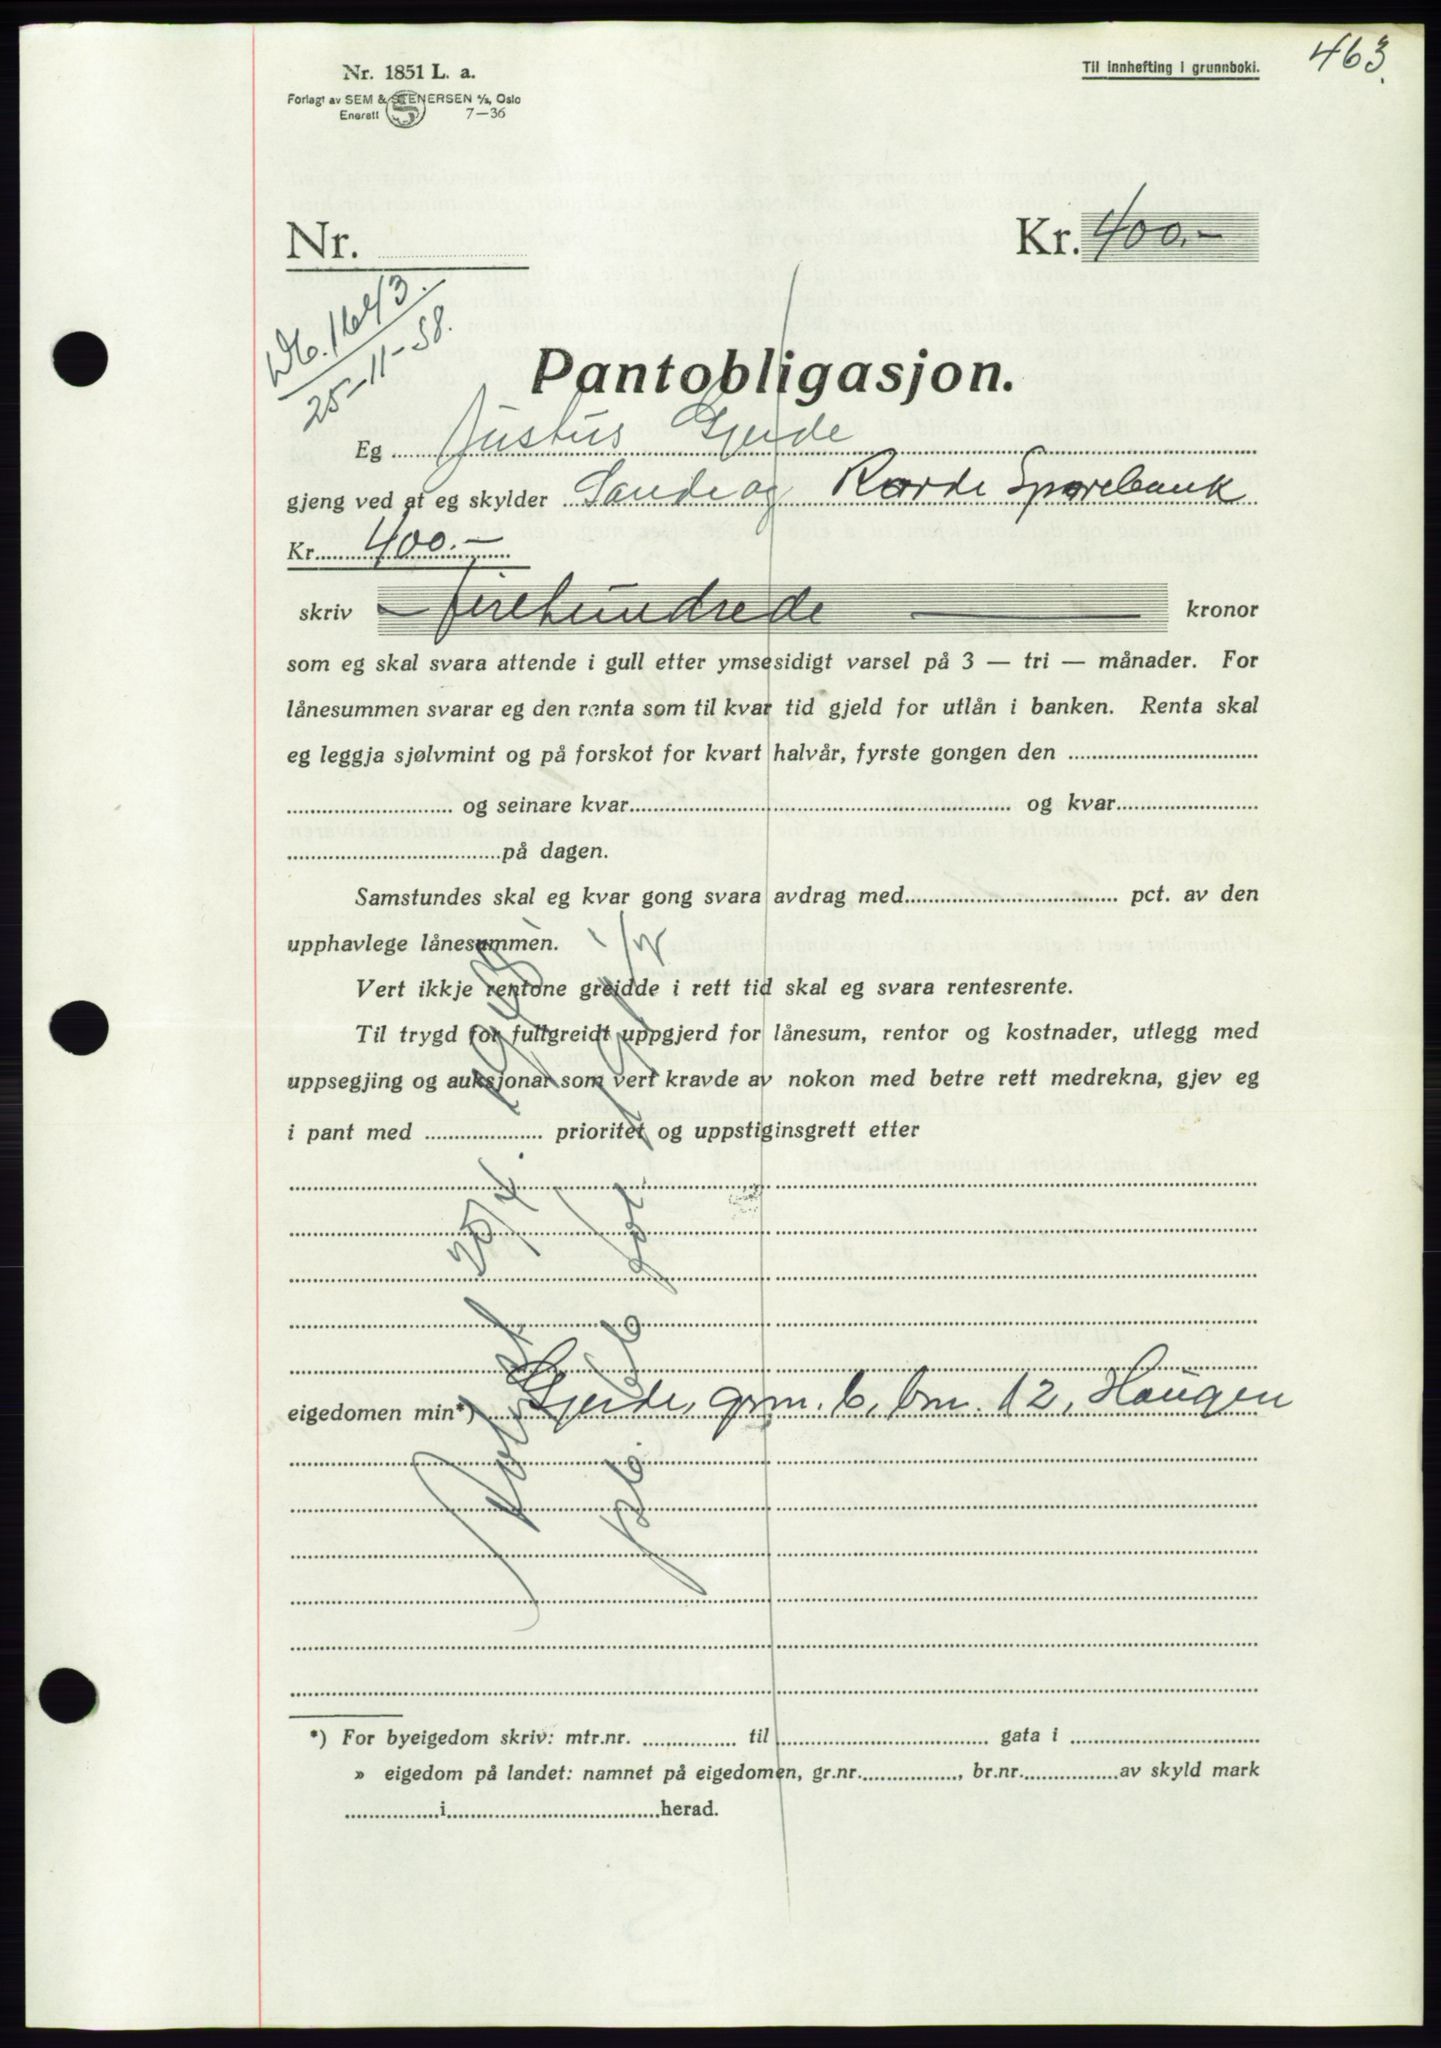 463.
Til innhefting i grunnboki.
Nr. 1851 L. a.
Forlagt av SEM & STENERSEN A/S, Oslo
Enerett 7—36
Nr. ....................
Kr. 400.-
Db. 1643.
25-11-38.
Pantobligasjon.
Eg Justus Gjerde
gjeng ved at eg skylder Sande og Rovde Sparebank
Kr. 400.-
skriv — firehundrede — kronor
som eg skal svara attende i gull etter ymsesidigt varsel på 3 — tri — månader. For
lånesummen svarar eg den renta som til kvar tid gjeld for utlån i banken. Renta skal
eg leggja sjølvmint og på forskot for kvart halvår, fyrste gongen den ....................
.................... og seinare kvar.................... og kvar....................
....................på dagen.
Samstundes skal eg kvar gong svara avdrag med.................... pct. av den
upphavlege lånesummen.
Vert ikkje rentone greidde i rett tid skal eg svara rentesrente.
Til trygd for fullgreidt uppgjerd for lånesum, rentor og kostnader, utlegg med
uppsegjing og auksjonar som vert kravde av nokon med betre rett medrekna, gjev eg
i pant med .................... prioritet og uppstiginsgrett etter
eigedomen min*) Gjerde, grm. 6, brn. 12, Haugen
*) For byeigedom skriv: mtr.nr. ................ til.................... gata i ....................
» eigedom på landet: namnet på eigedomen, gr.nr................, br.nr................av skyld mark
................i....................herad.